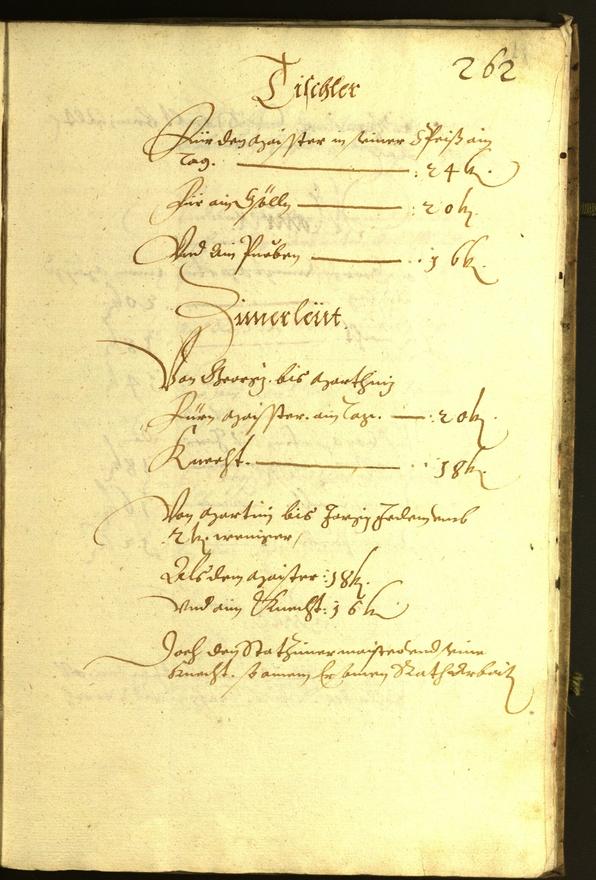 262
Tischler
Für den Maister in seiner Speiß ain
Tag. : 24 kr.
Für ain Gsölln : 20 kr.
Vnd ain Pueben : 16 kr.
Zimerleüt.
Von Georgy. bis Marthiny
Fürn Maister. ain Tag. : 20 kr.
Knecht. : 18 kr.
Von Martiny bis Jorgy Jedem
2 kr. weniger /
Als dem Maister : 18 kr.
Vnd aim Knecht : 16 kr.
Doch den Statzimermaister vnd seine
Knecht. so ainem Er bmen Rath Arbeit